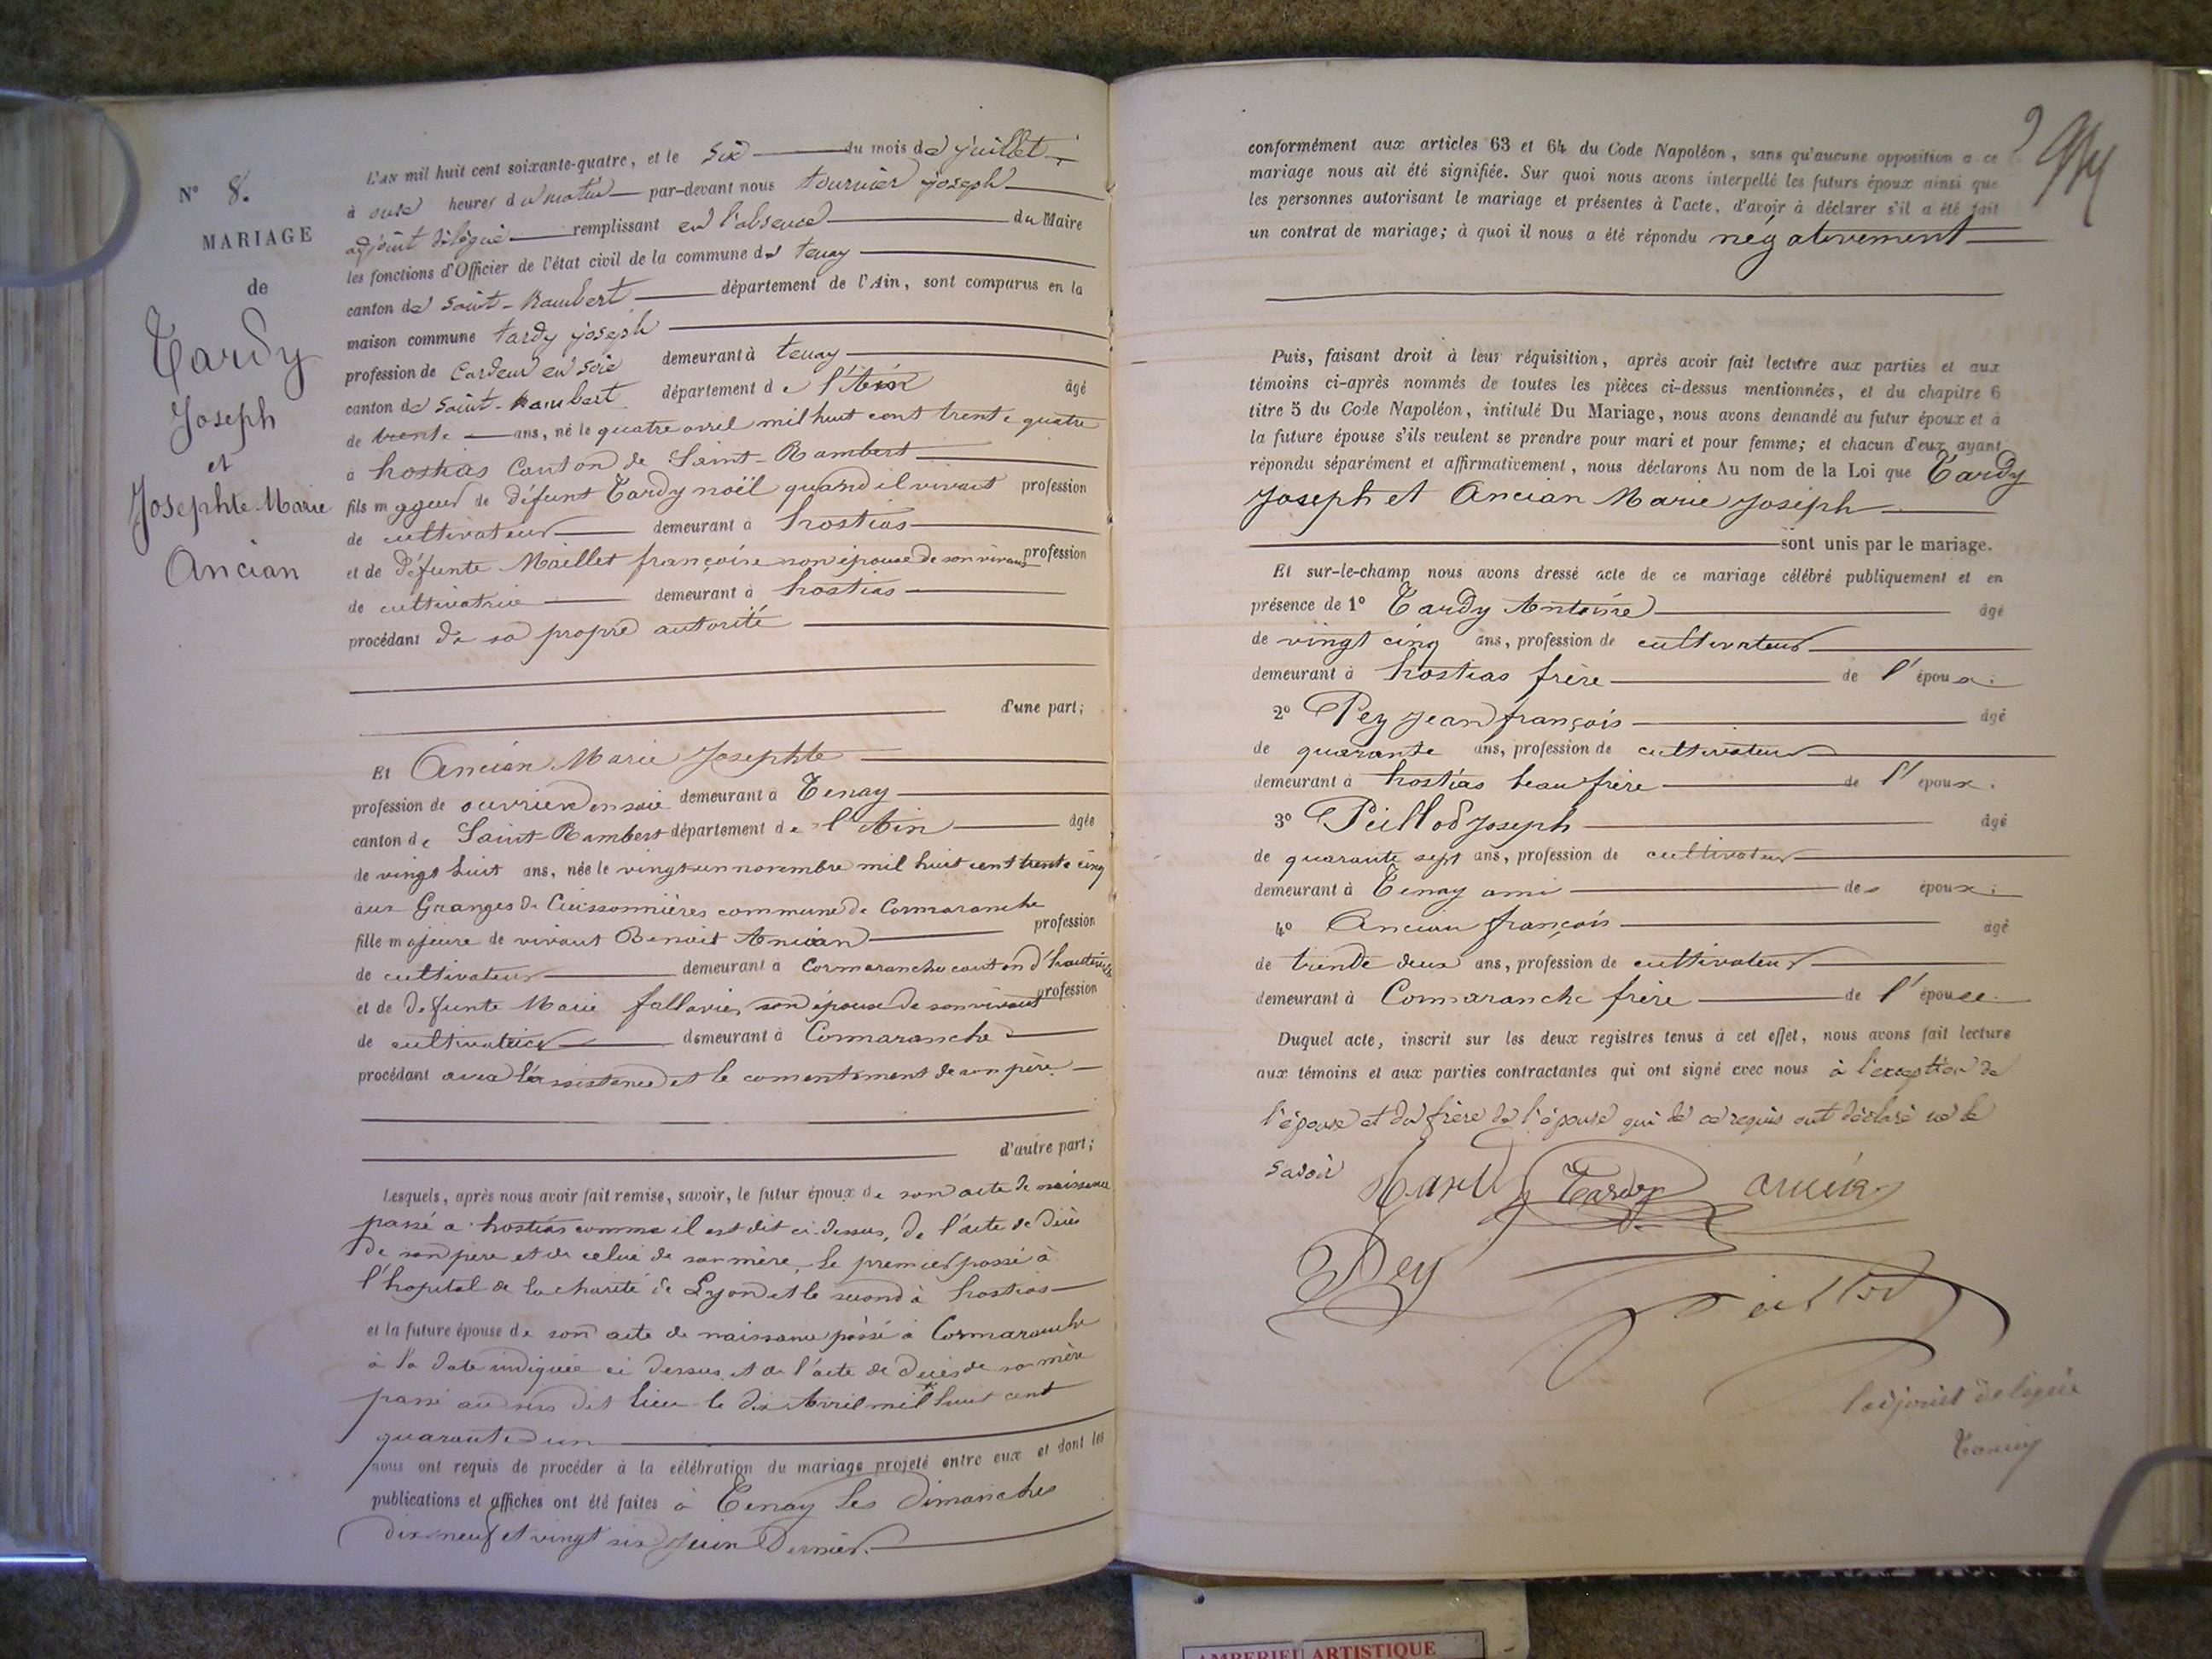 N° 8.
MARIAGE
de
Tardy
Joseph
et
Josephte Marie
Ancian
L'AN mil huit cent soixante-quatre, et le six du mois de juillet
à onze heures du matin par-devant nous tournier joseph
adjoint délégué remplissant en l'absence du Maire
les fonctions d'Officier de l'état civil de la commune de tenay
canton de saint-Rambert département de l'Ain, sont comparus en la
maison commune tardy joseph
profession de Cardeur en soie demeurant à tenay
canton de saint-Rambert département de l'Ain âgé
de trente ans, né le quatre avril mil huit cent trente quatre
à hostias Canton de Saint-Rambert
fils majeur de défunt Tardy noël quand il vivait profession
de cultivateur demeurant à hostias
et de défunte Maillet françoise son épouse de son vivant profession
de cultivatrice demeurant à hostias
procédant de sa propre autorité
d'une part;
Et Ancian Marie Josephte
profession de ouvrière en soie demeurant à Tenay
canton de Saint-Rambert département de l'Ain âgée
de vingt huit ans, née le vingt un novembre mil huit cent trente cinq
aux Granges de Cuissonnières commune de Cormaranche
fille majeure de vivant Benoit Ancian profession
de cultivateur demeurant à Cormaranche canton d'hauteville
et de défunte Marie fallavier son épouse de son vivant profession
de cultivatrice demeurant à Cormaranche
procédant avec l'assistance et le consentement de son père
d'autre part;
Lesquels, après nous avoir fait remise, savoir, le futur époux de son acte de naissance
passé a hostias comme il est dit ci-dessus, de l'acte de décès
de son père et de celui de sa mère, le premier passé à
l'hopital de la charité de Lyon et le second à hostias
et la future épouse de son acte de naissance passé à Cormaranche
à la date indiquée ci dessus et de l'acte de décès de sa mère
passé au sus dit lieu le dix Avril mil huit cent
quarante un
nous ont requis de procéder à la célébration du mariage projeté entre eux et dont les
publications et affiches ont été faites à Tenay les dimanches
dix neuf et vingt six Juin Dernier.
conformément aux articles 63 et 64 du Code Napoléon, sans qu'aucune opposition a ce
mariage nous ait été signifiée. Sur quoi nous avons interpellé les futurs époux ainsi que
les personnes autorisant le mariage et présentes à l'acte, d'avoir à déclarer s'il a été fait
un contrat de mariage; à quoi il nous a été répondu négativement
Puis, faisant droit à leur réquisition, après avoir fait lecture aux parties et aux
témoins ci-après nommés de toutes les pièces ci-dessus mentionnées, et du chapitre 6
titre 5 du Code Napoléon, intitulé Du Mariage, nous avons demandé au futur époux et à
la future épouse s'ils veulent se prendre pour mari et pour femme; et chacun d'eux ayant
répondu séparément et affirmativement, nous déclarons Au nom de la Loi que Tardy
Joseph et Ancian Marie Joseph
sont unis par le mariage.
Et sur-le-champ nous avons dressé acte de ce mariage célébré publiquement et en
présence de 1° Tardy Antoine âgé
de vingt cinq ans, profession de cultivateur
demeurant à hostias frère de l'époux.
2° Pey Jean françois âgé
de quarante ans, profession de cultivateur
demeurant à hostias beau frère de l'époux.
3° Peillod Joseph âgé
de quarante sept ans, profession de cultivateur
demeurant à Tenay ami des époux.
4° Ancian françois âgé
de trente deux ans, profession de cultivateur
demeurant à Cormaranche frère de l'épouse.
Duquel acte, inscrit sur les deux registres tenus à cet effet, nous avons fait lecture
aux témoins et aux parties contractantes qui ont signé avec nous à l'exception de
l'épouse et du frère de l'épouse qui de ce requis ont déclaré ne le
savoir
Tardy
Pey
l'adjoint délégué
AMBERIEU ARTISTIQUE